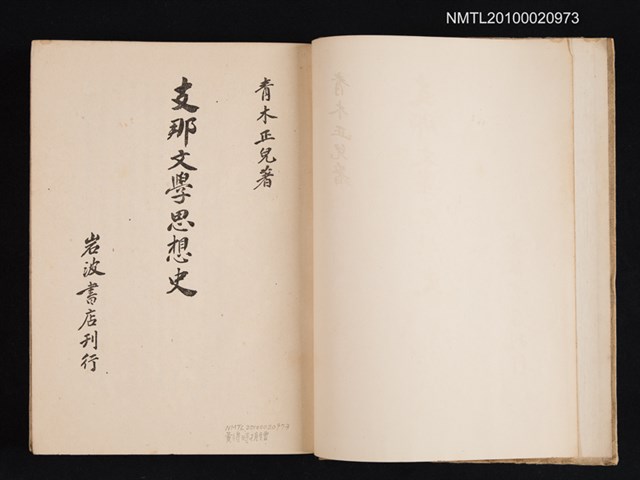 NMTL20100020973
青木正兒著
支那文學思想史
岩波書店刊行